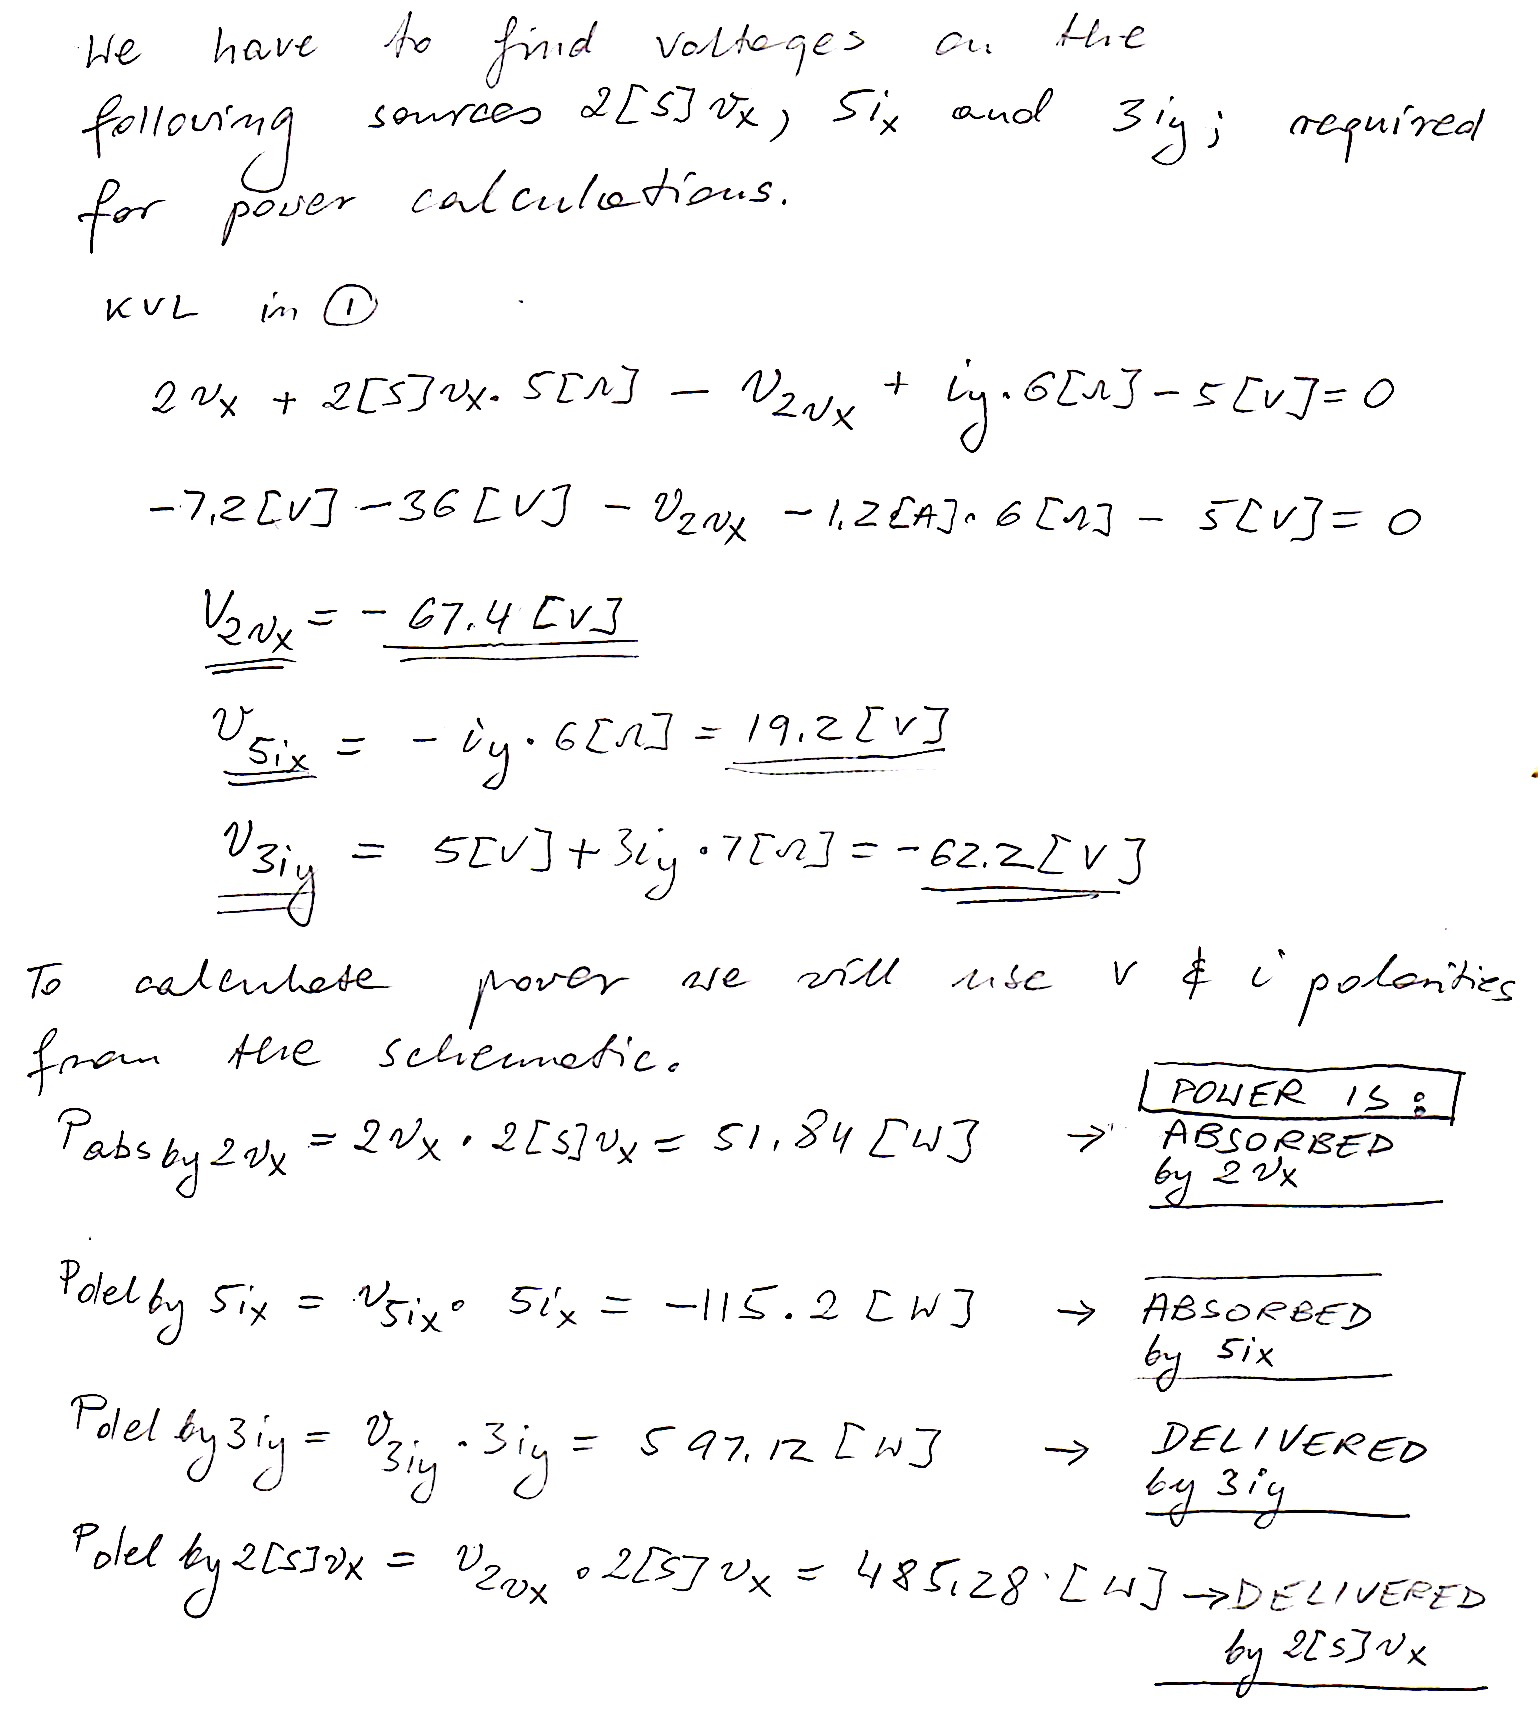 We have to find voltages on the
following sources 2[S]vx, 5ix and 3iy; required
for power calculations.
KVL in ①
2vx + 2[S]vx·5[Ω] - v2vx + iy·6[Ω] - 5[V] = 0
-7,2[V] - 36[V] - v2vx - 1,2[A]·6[Ω] - 5[V] = 0
V2vx = - 67.4 [V]
v5ix = - iy·6[Ω] = 19,2[V]
v3iy = 5[V] + 3iy·7[Ω] = -62.2[V]
To calculate power we will use v & i polarities
from the schematic.
POWER IS:
Pabs by 2vx = 2vx · 2[S]vx = 51,84 [W] → ABSORBED
by 2vx
Pdel by 5ix = v5ix · 5ix = -115.2 [W] → ABSORBED
by 5ix
Pdel by 3iy = v3iy · 3iy = 597,12 [W] → DELIVERED
by 3iy
Pdel by 2[S]vx = v2vx · 2[S]vx = 485,28 [W] → DELIVERED
by 2[S]vx